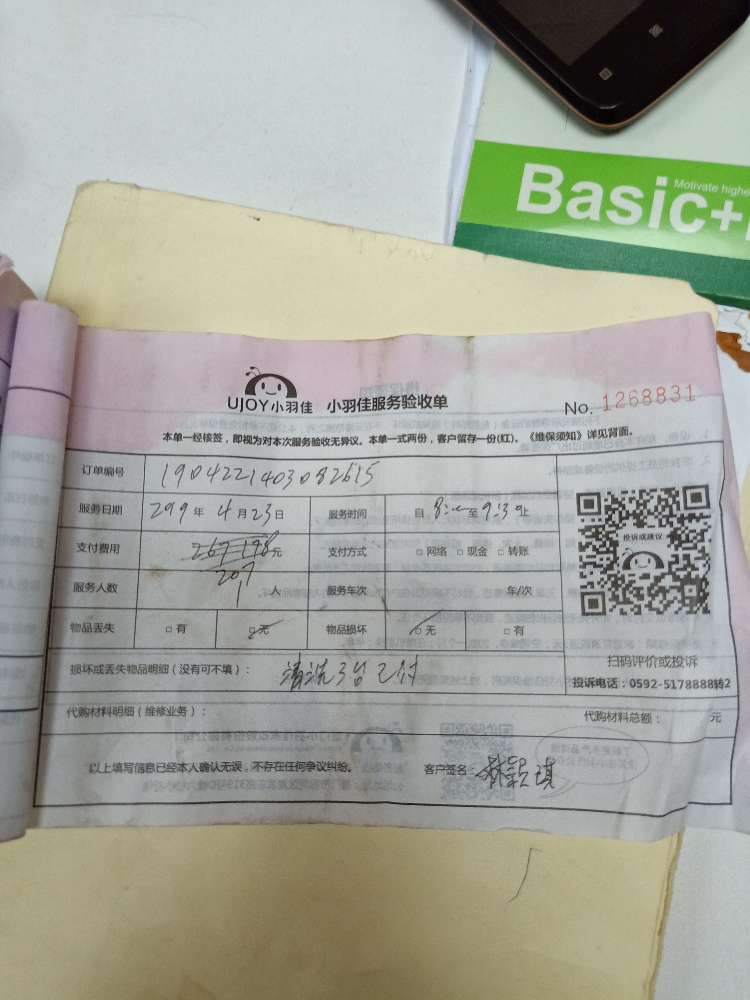 Motivate highe
Basic+
UJOY小羽佳 小羽佳服务验收单
No. 1268831
本单一经核签，即视为对本次服务验收无异议。本单一式两份，客户留存一份(红)。《维保须知》详见背面。
订单编号 1904221403082615
服务日期 2019年4月23日 服务时间 自8:00至9:30止
支付费用 267 198元 支付方式 □网络 □现金 □转账
207
服务人数 1人 服务车次 车/次
物品丢失 □有 □无 物品损坏 □无 □有
投诉或建议
扫码评价或投诉
投诉电话：0592-5178888转2
损坏或丢失物品明细（没有可不填）： 清洗3台已付
代购材料明细（维修业务）： 代购材料总额： 元
以上填写信息已经本人确认无误，不存在任何争议纠纷。 客户签名：林颖琪